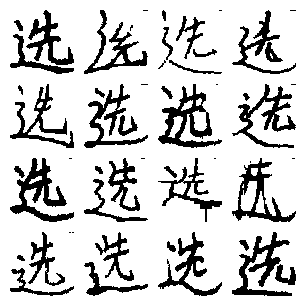 选选选选
选选选选
选选选选
选选选选